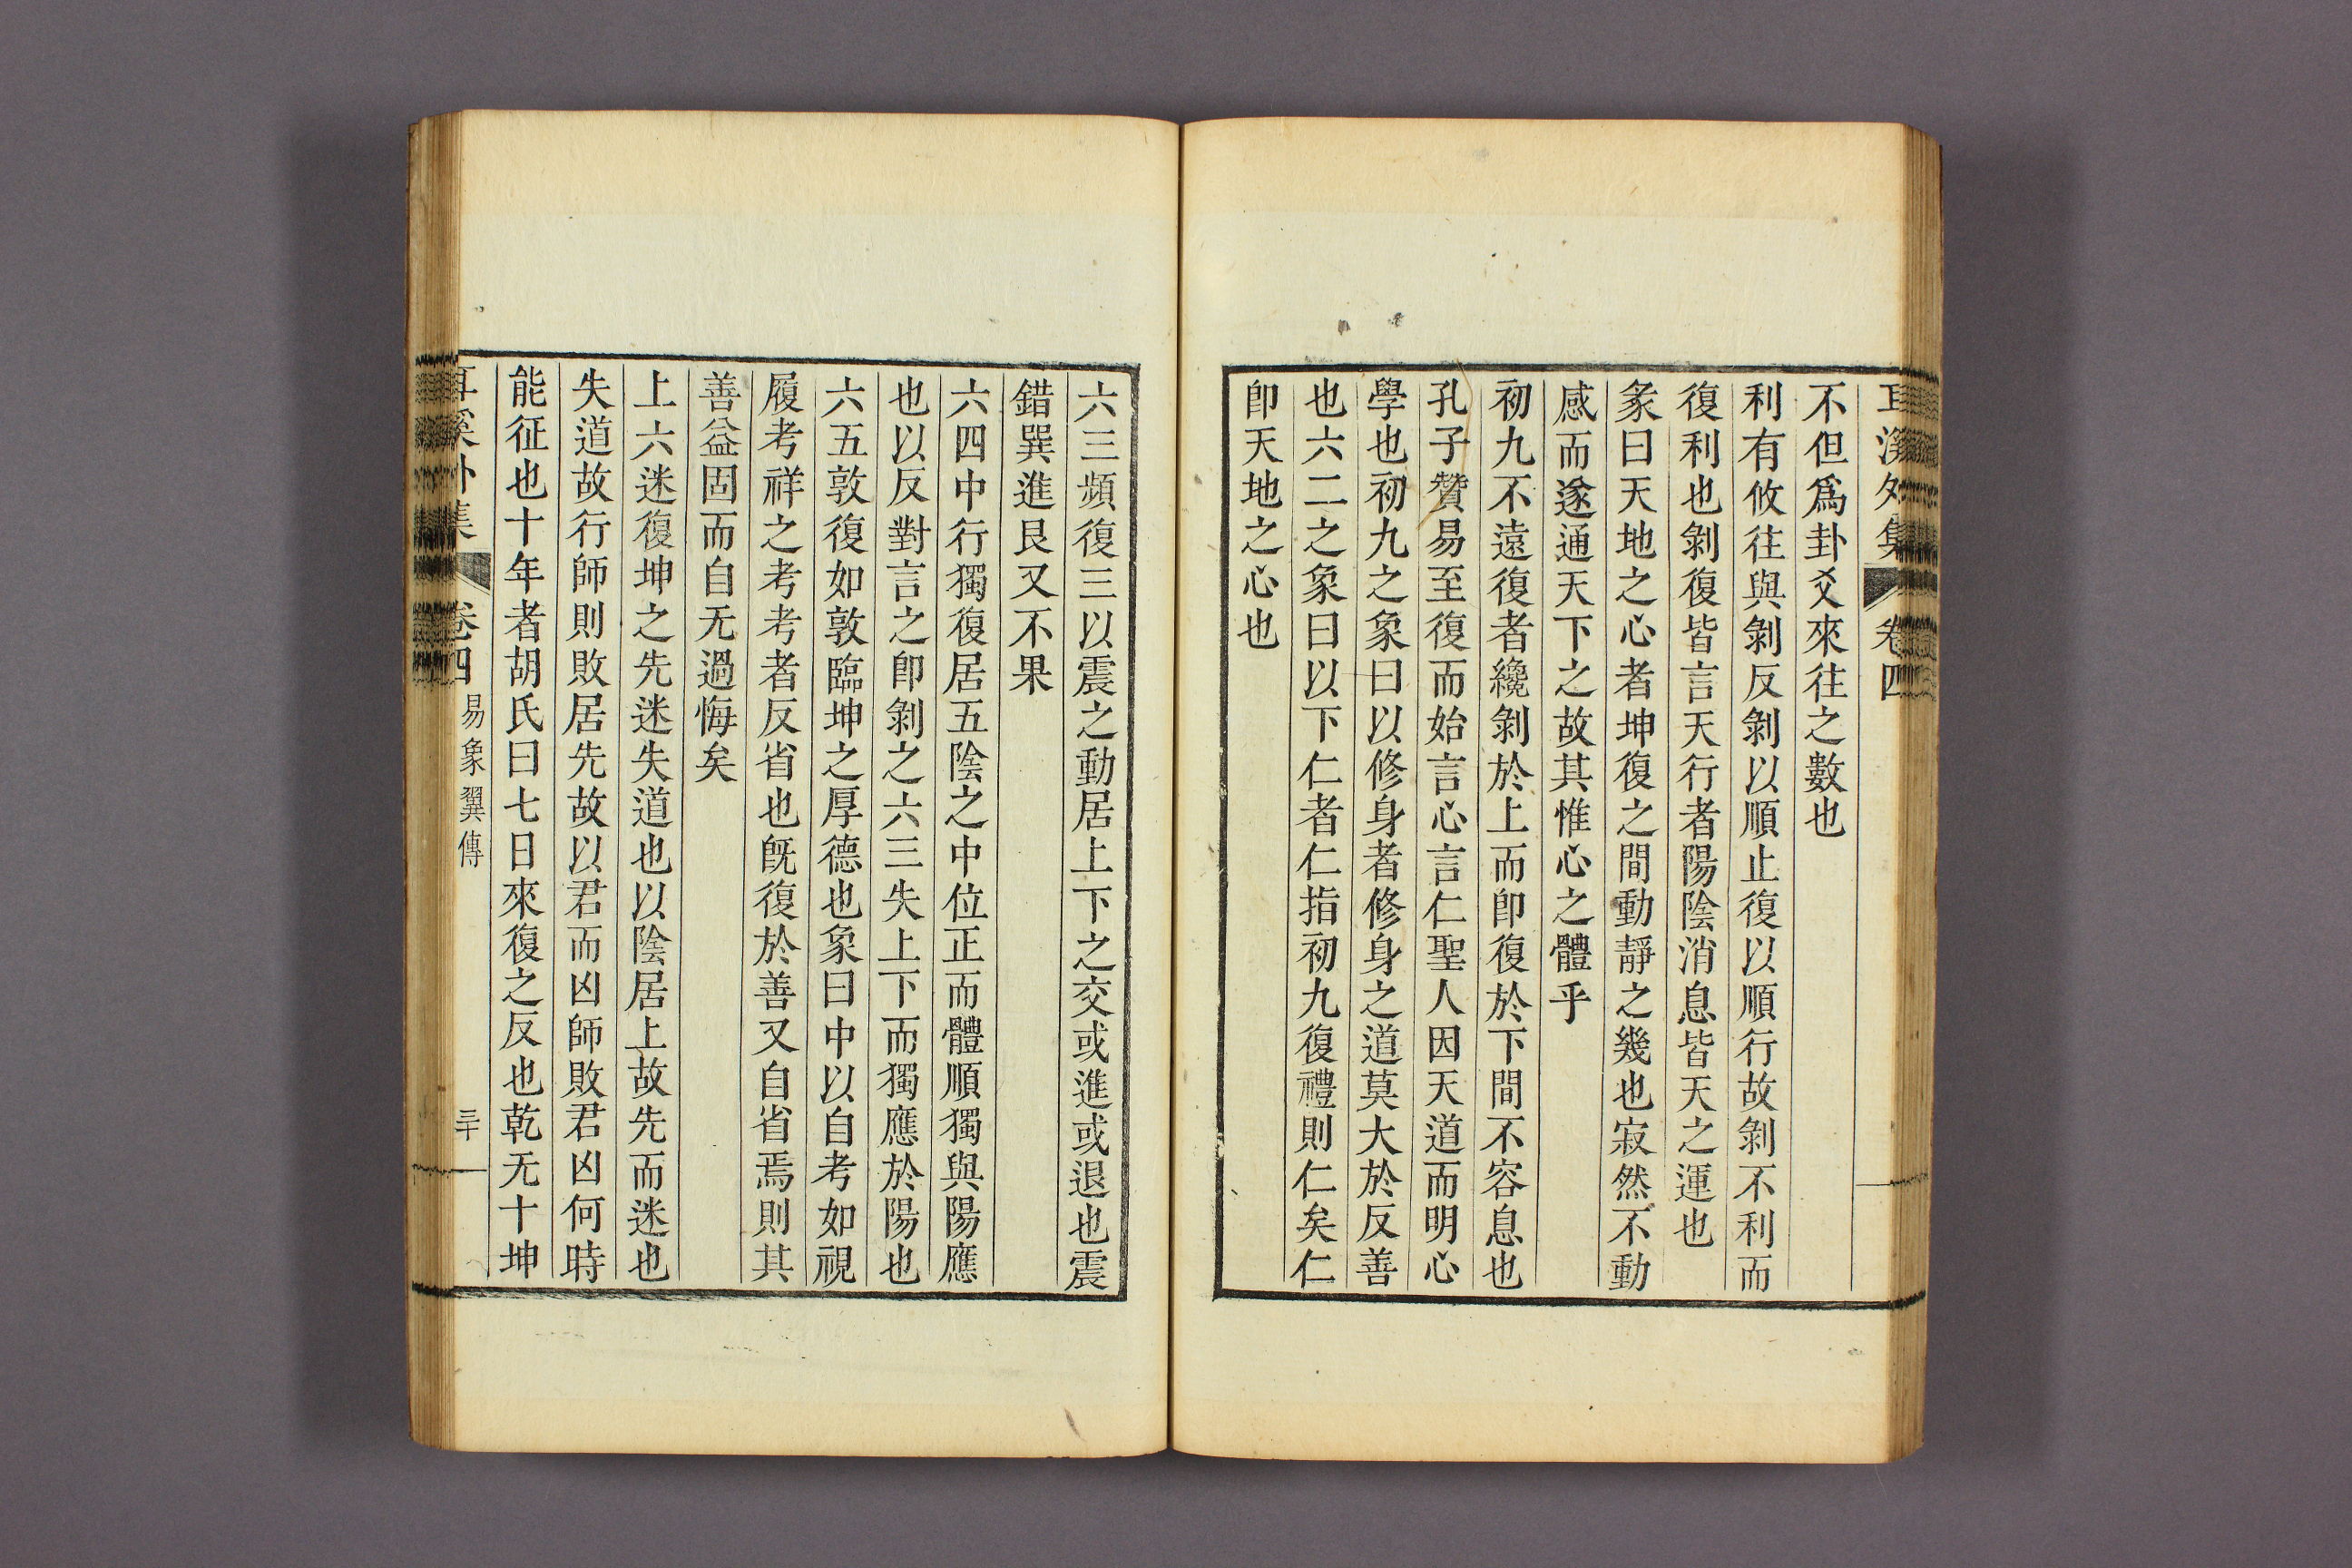 耳溪外集 卷四
不但爲卦爻來往之數也
利有攸往與剝反剝以順止復以順行故剝不利而
復利也剝復皆言天行者陽陰消息皆天之運也
彖曰天地之心者坤復之間動靜之幾也寂然不動
感而遂通天下之故其惟心之體乎
初九不遠復者纔剝於上而即復於下間不容息也
孔子贊易至復而始言心言仁聖人因天道而明心
學也初九之象曰以修身者修身之道莫大於反善
也六二之象曰以下仁者仁指初九復禮則仁矣仁
即天地之心也
六三頻復三以震之動居上下之交或進或退也震
錯巽進艮又不果
六四中行獨復居五陰之中位正而體順獨與陽應
也以反對言之即剝之六三失上下而獨應於陽也
六五敦復如敦臨坤之厚德也象曰中以自考如視
履考祥之考考者反省也旣復於善又自省焉則其
善益固而自无過悔矣
上六迷復坤之先迷失道也以陰居上故先而迷也
失道故行師則敗居先故以君而凶師敗君凶何時
能征也十年者胡氏曰七日來復之反也乾无十坤
耳溪外集 卷四 易象翼傳 三十